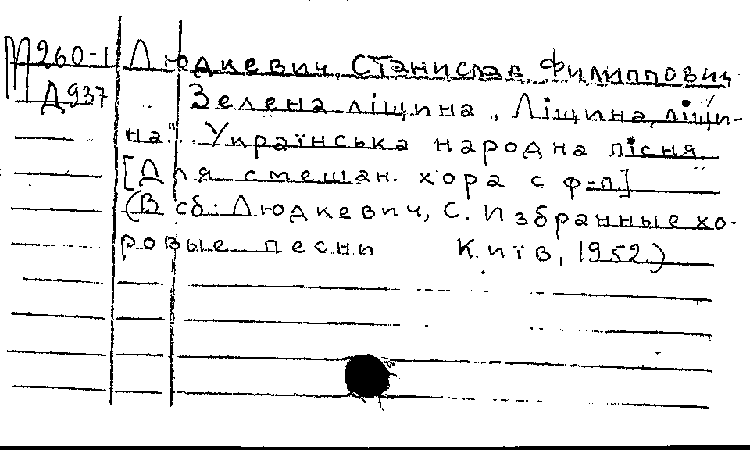 М260-1 Людкевич, Станислав Филиппович
Д937 „Зелена ліщина, Ліщина, ліщи-
на". Українська народна пісня.
[Для смешан. хора с ф-п.]
(В сб: Людкевич, С. Избранные хо-
ровые песни Київ, 1952.)